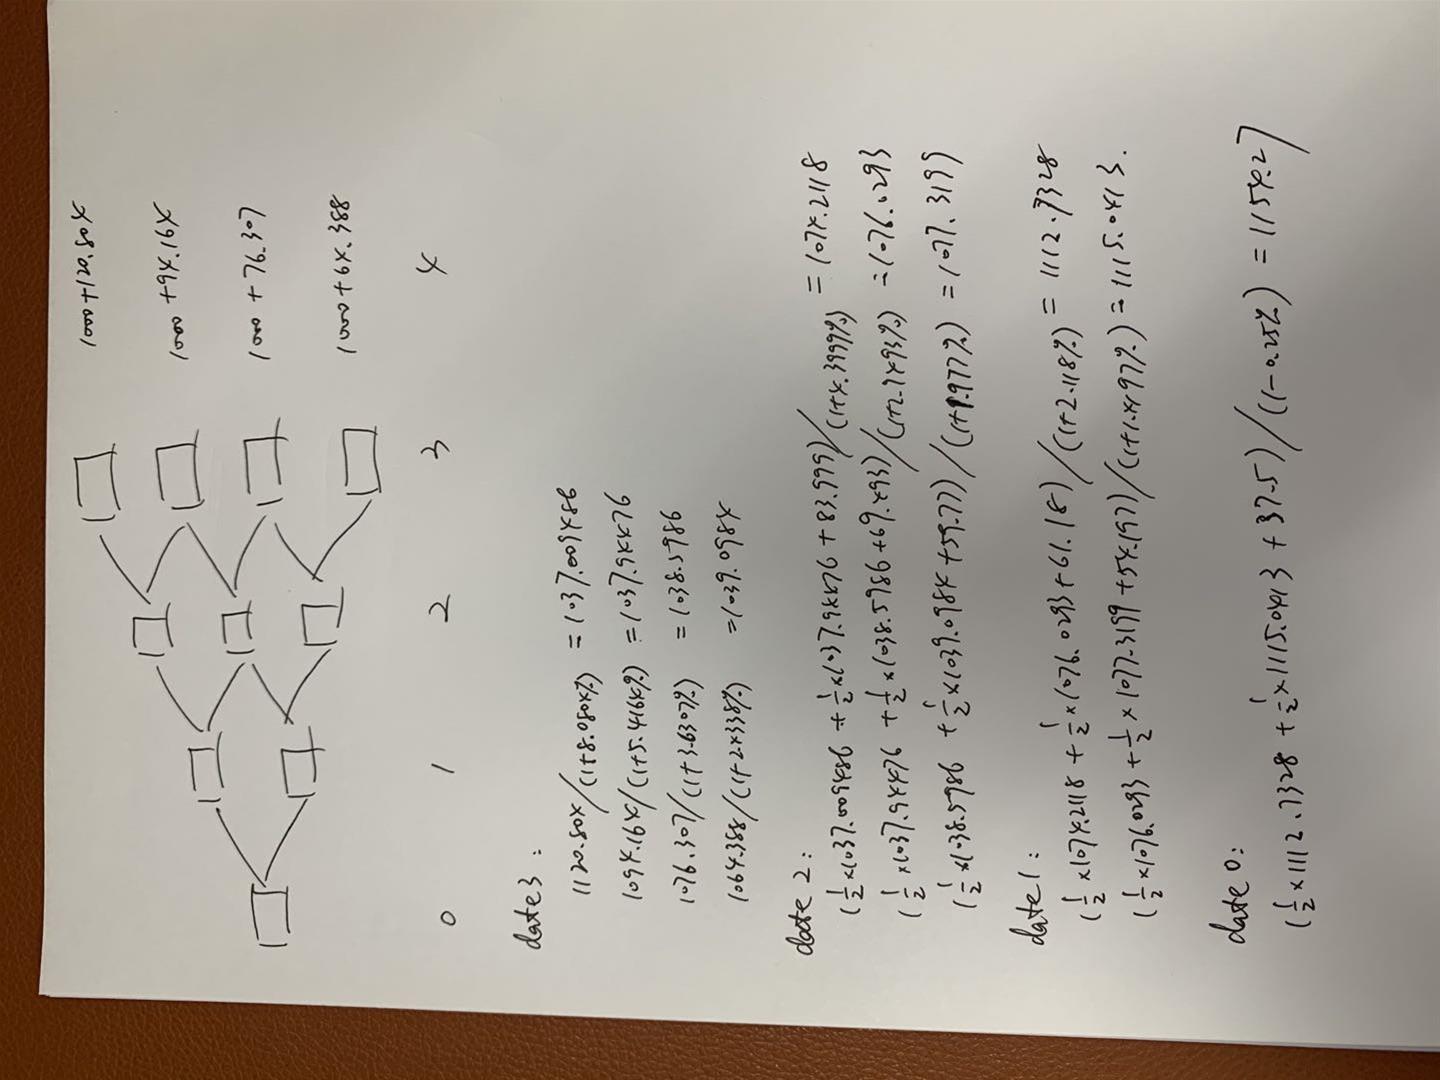 1000+120.804
1000+94.164
1000+76.307
1000+64.388
0 1 2 3 4
date3:
1120.804/(1+8.0804%) =1037.009486
1094.164/(1+5.4164%) =1037.944476
1076.307/(1+3.6307%) =1038.5986
1064.388/(1+2.4388%) =1039.0984
date 2:
(½×1037.009486 + ½×1037.944476 + 83.999)/(1+4.3999%) =1074.2118
(½×1037.944476 + ½×1038.5986+69.493)/(1+2.9493%) =1076.0293
(½×1038.5986 +½×1039.0984 +59.77)/(1+1.977%) =1077.3199
date 1:
(½×1074.2118 + ½×1076.0293+61.18)/(1+2.118%) = 1112.7328
(½×1076.0293+½×1077.3199 +54.197)/(1+1.4197%) =1115.0413.
date 0:
(½×1112.7328 +½×1115.0413 +37.5)/(1-0.25%) =1154.27